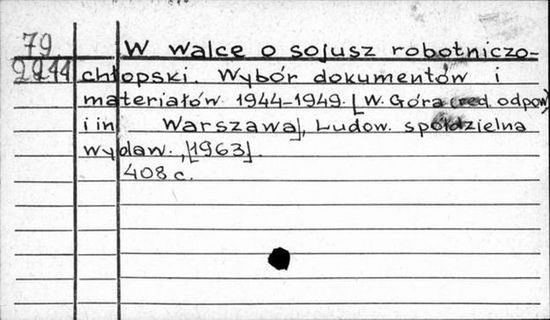 79
2944
W walce o sojusz robotniczo-
chłopski. Wybór dokumentów i
materiałów 1944-1949. [W. Góra (red. odpow)
i in Warszawa], Ludow. spółdzielna
wydaw., [1963].
408 c.